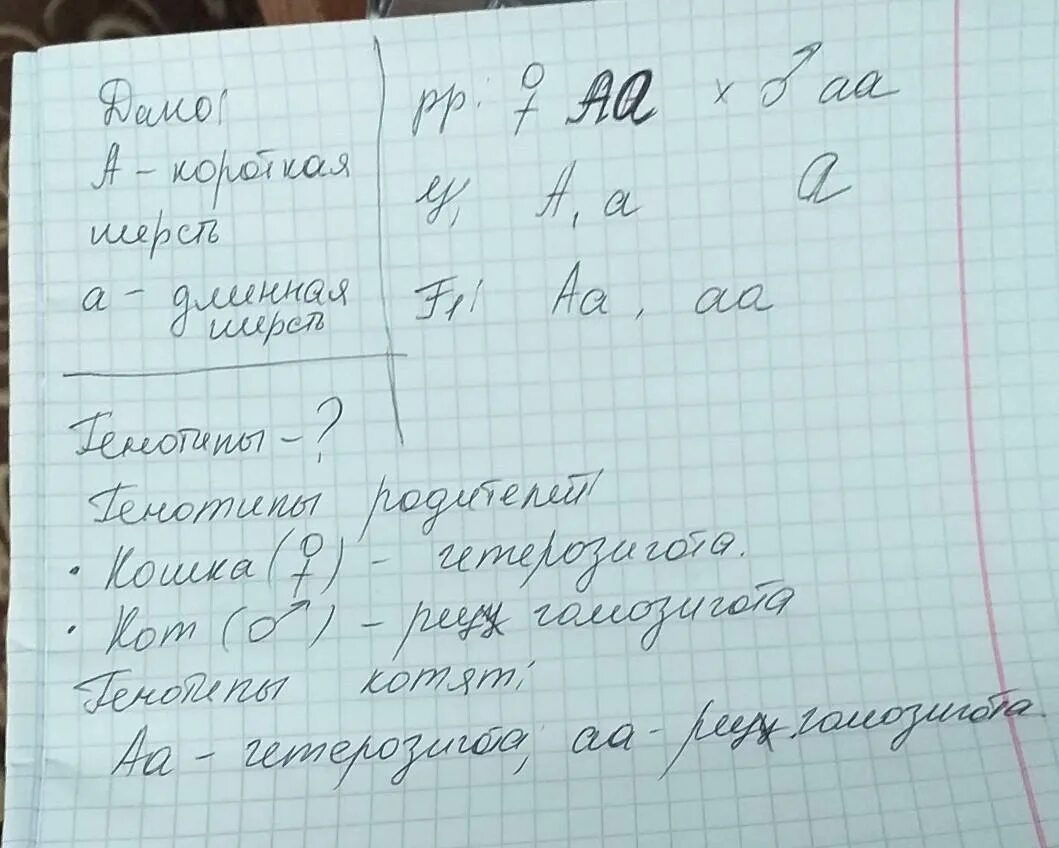 Дано:
А - короткая
шерсть
а - длинная
шерсть
Генотипы - ?
рр: ♀ Аа × ♂ аа
А, а а
F1: Аа, аа
Генотипы родителей:
• Кошка (♀) - гетерозигота.
• Кот (♂) - рец гомозигота
Генотипы котят:
Аа - гетерозигота; аа - рец. гомозигота.